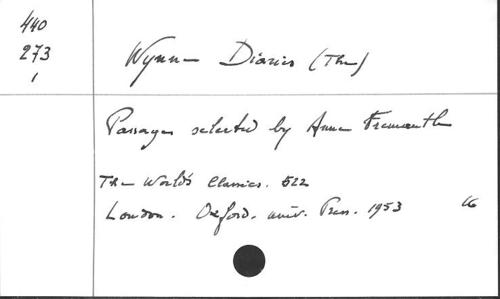 440
273
1
Wynne Diaries (The)
Passages selected by Anne Fremantle
The World's Classics. 522
London. Oxford. univ. Press. 1953